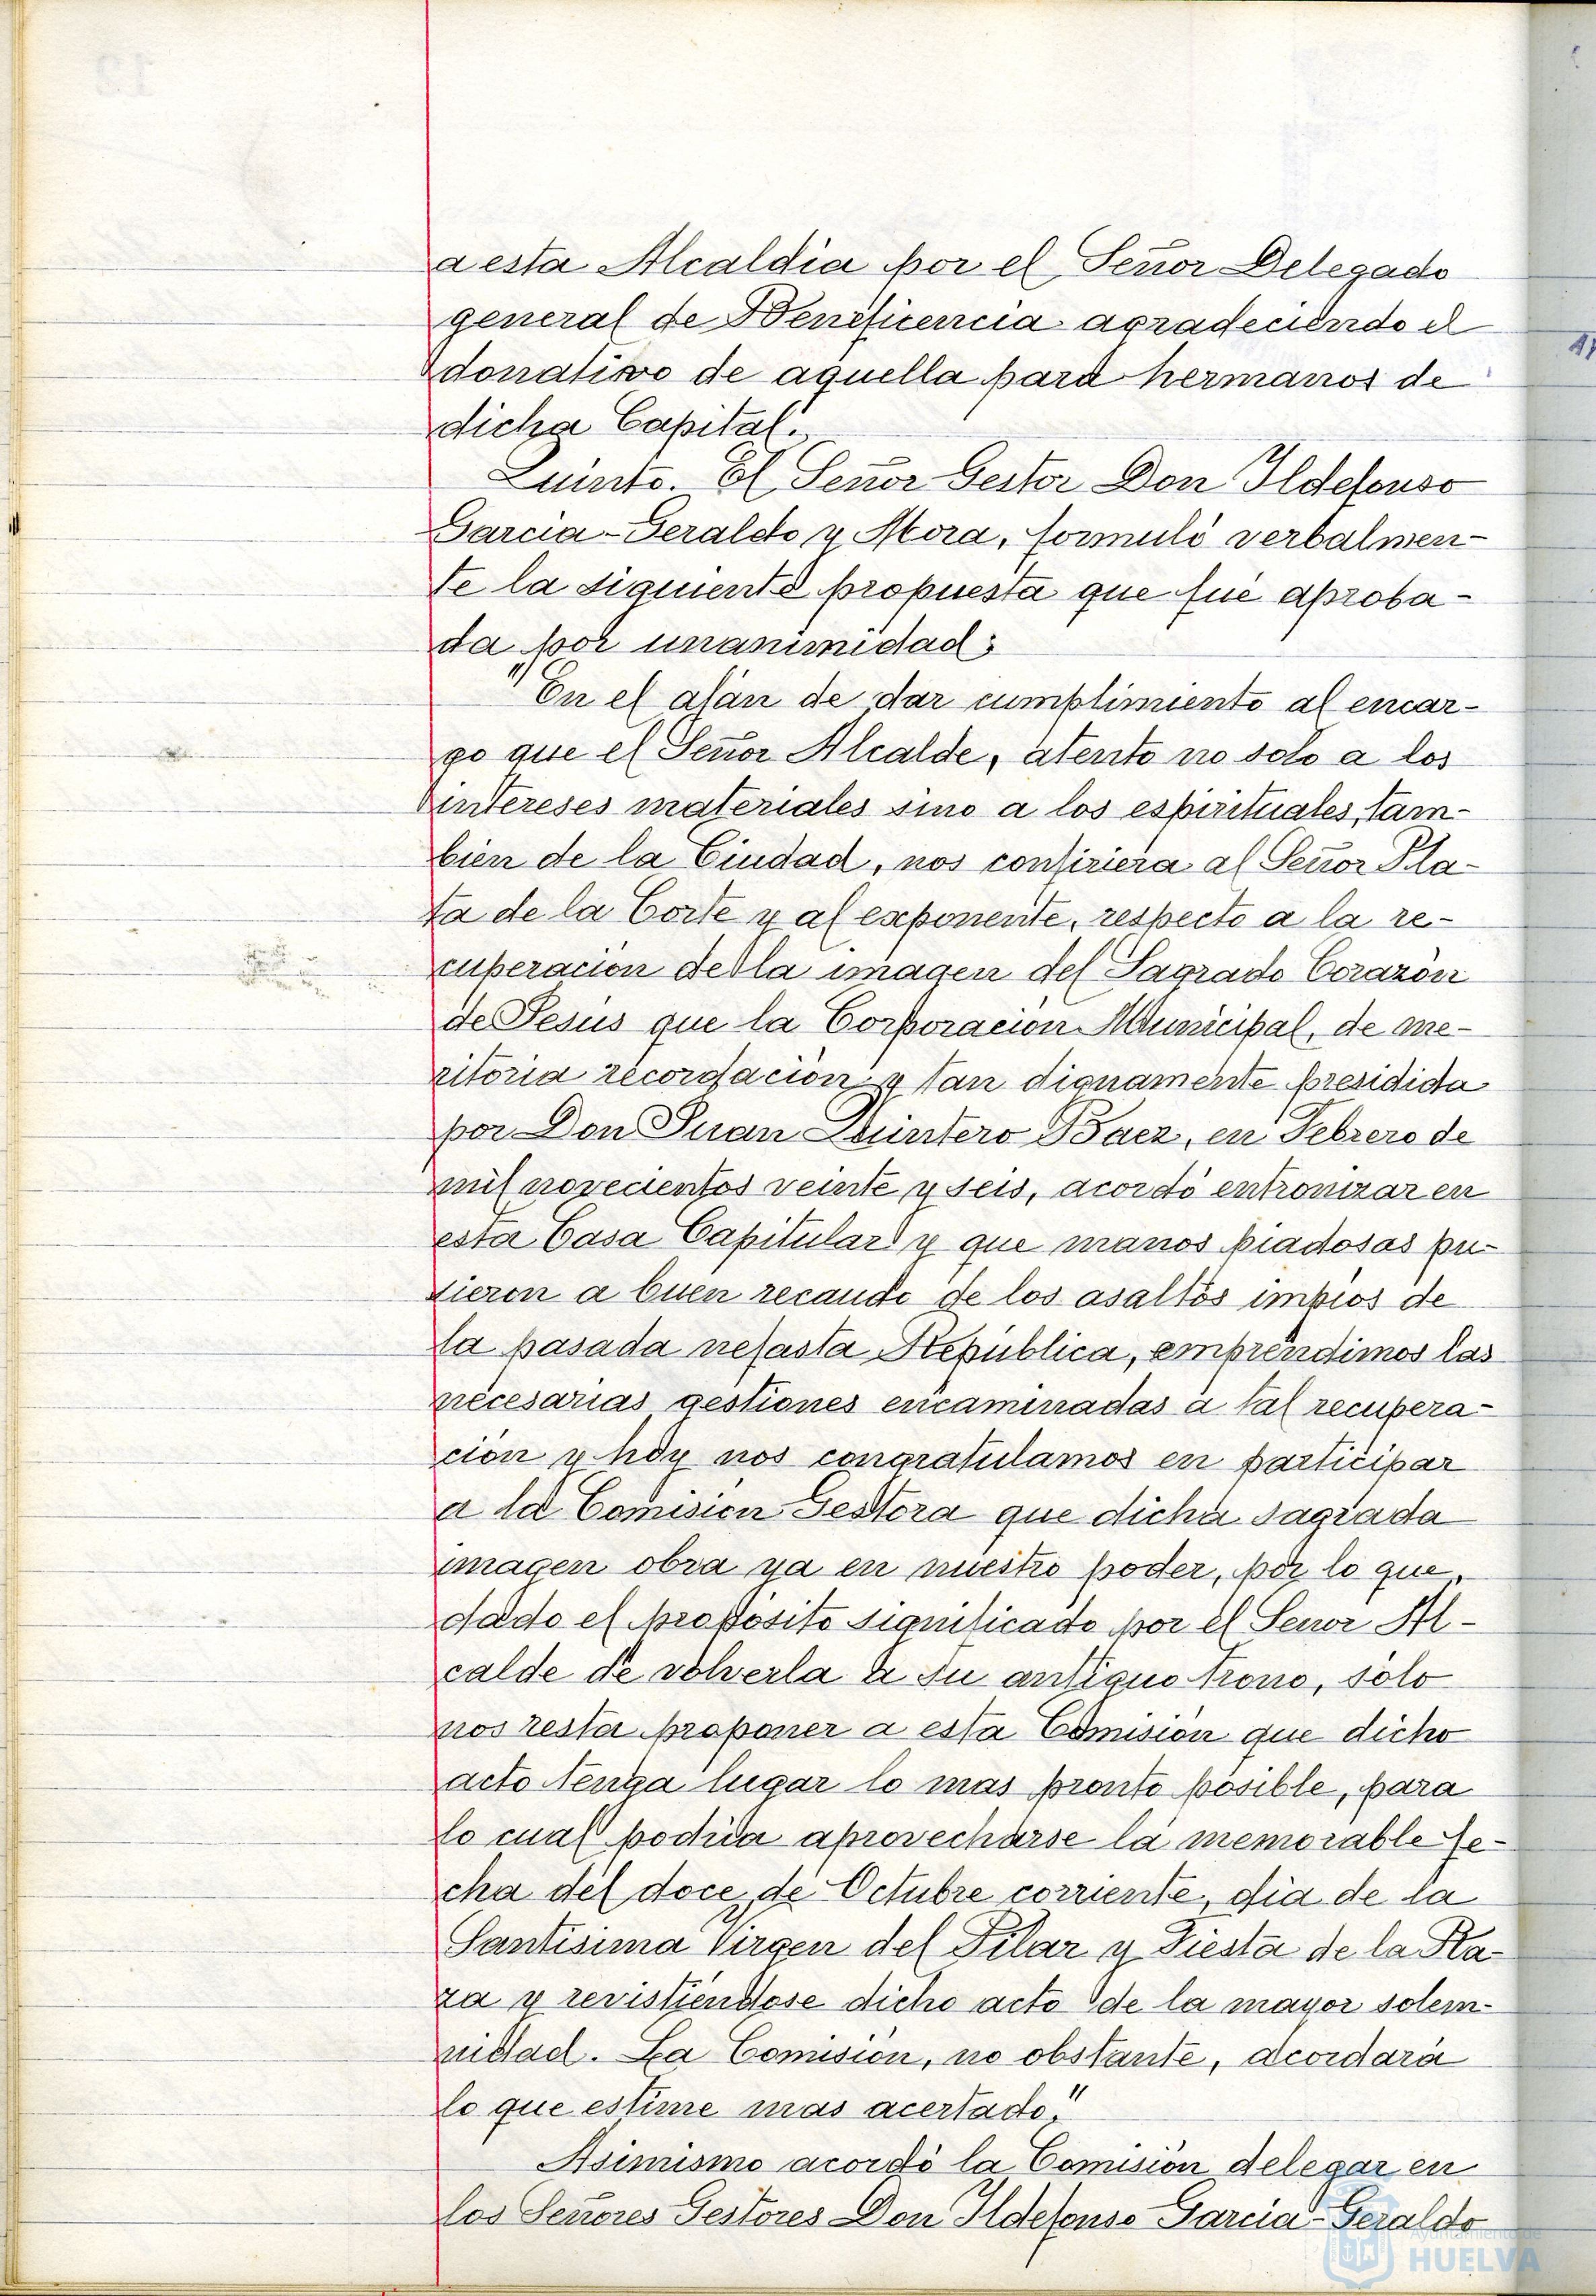 a esta Alcaldia por el Señor Delegado
general de Beneficencia agradeciendo el
donativo de aquella para hermanos de
dicha Capital.
Quinto. El Señor Gestor Don Ildefonso
Garcia-Geraldo y Mora, formuló verbalmen-
te la siguiente propuesta que fué aproba-
da por unanimidad:
"En el afán de dar cumplimiento al encar-
go que el Señor Alcalde, atento no solo a los
intereses materiales sino a los espirituales, tam-
bien de la Ciudad, nos confiriera al Señor Pla-
ta de la Corte y al exponente, respecto a la re-
cuperación de la imagen del Sagrado Corazón
de Jesús que la Corporación Municipal, de me-
ritoria recordación y tan dignamente presidida
por Don Juan Quintero Baez, en Febrero de
mil novecientos veinte y seis, acordó entronizar en
esta Casa Capitular y que manos piadosas pu-
sieron a buen recaudo de los asaltos impios de
la pasada nefasta República, emprendimos las
necesarias gestiones encaminadas a tal recupera-
ción y hoy nos congratulamos en participar
a la Comisión Gestora que dicha sagrada
imagen obra ya en nuestro poder, por lo que,
dado el propósito significado por el Señor Al-
calde de volverla a su antiguo trono, sólo
nos resta proponer a esta Comisión que dicho
acto tenga lugar lo mas pronto posible, para
lo cual podría aprovecharse la memorable fe-
cha del doce de Octubre corriente, dia de la
Santisima Virgen del Pilar y Fiesta de la Ra-
za y revistiéndose dicho acto de la mayor solem-
nidad. La Comisión, no obstante, acordará
lo que estime mas acertado."
Asimismo acordó la Comisión delegar en
los Señores Gestores Don Ildefonso Garcia-Geraldo
Ayuntamiento de
HUELVA